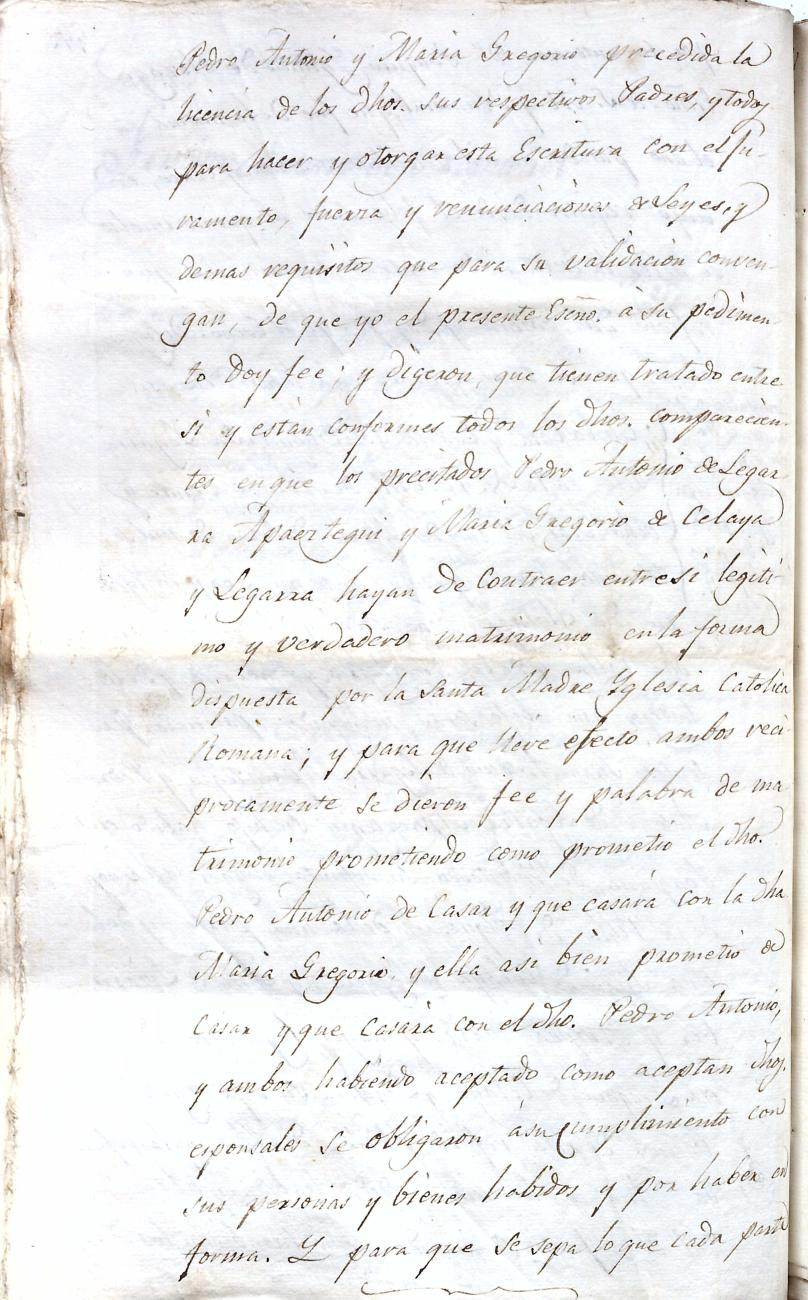 Pedro Antonio y Maria Gregorio precedida la
licencia de los dhos. sus respectivos Padres, y todos
para hacer y otorgar esta Escritura con el Ju-
ramento, fuerza y renunciaciones de Leyes, y
demas requisitos que para su validacion conven-
gan, de que yo el presente Esño. à su pedimen-
to doy fee; y digeron, que tienen tratado entre
si y estàn conformes todos los dhos. comparecien-
tes en que los precitados Pedro Antonio de Legar-
ra Apaeztegui y Maria Gregorio de Celaya
y Legarra hayan de Contraer entre si legiti-
mo y verdadero matrimonio en la forma
dispuesta por la Santa Madre Yglesia Catolica
Romana; y para que lleve efecto ambos reci-
procamente se dieron fee y palabra de ma
trimonio prometiendo como prometio el dho.
Pedro Antonio de Casar y que casará con la dha
Maria Gregorio, y ella asi bien prometiò de
Casar y que Casàra con el dho. Pedro Antonio,
y ambos habiendo aceptado como aceptan dhos.
esponsales se obligaron à su Cumplimiento con
sus personas y bienes habidos y por haber en
forma. Y para que se sepa lo que cada parte